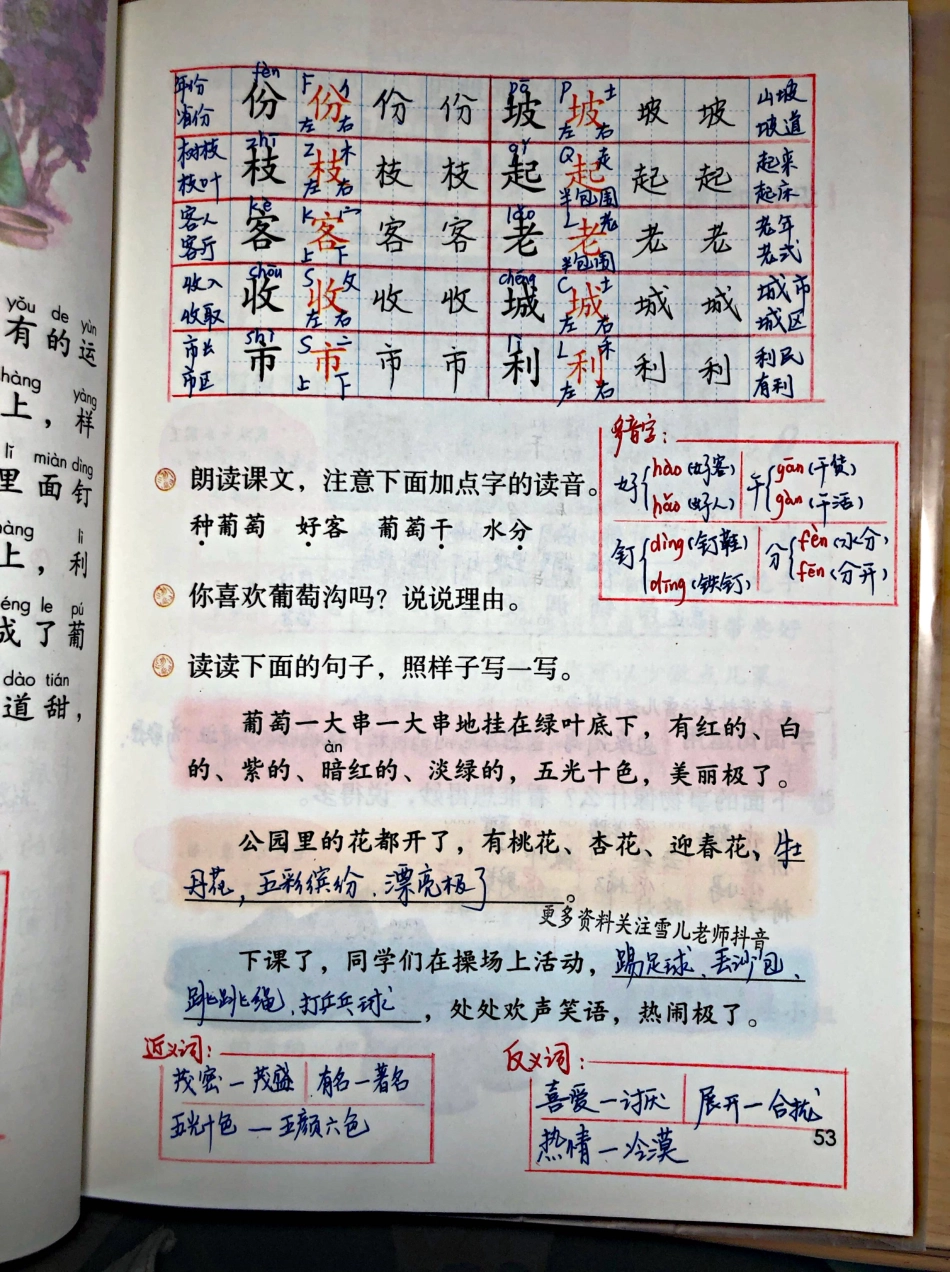 yǒu de yùn
有的运
hàng yàng
上，样
lǐ miàn dìng
里面钉
hàng lì
上，利
éng le pú
成了葡
dào tián
道甜，
年份 省份 fèn 份 F 份 亻 左 右 份 份 pō 坡 P 坡 土 左 右 坡 坡 山坡 坡道
树枝 枝叶 zhī 枝 Z 枝 木 左 右 枝 枝 qǐ 起 Q 起 走 半包围 起 起 起来 起床
客人 客厅 kè 客 K 客 宀 上 下 客 客 lǎo 老 L 老 老 半包围 老 老 老年 老式
收入 收取 shōu 收 S 收 攵 左 右 收 收 chéng 城 C 城 土 左 右 城 城 城市 城区
市长 市区 shì 市 S 市 亠 上 下 市 市 lì 利 L 利 禾 左 右 利 利 利民 有利
多音字：
好 hào（好客） hǎo（好人） 干 gān（干货） gàn（干活）
钉 dìng（钉鞋） dīng（铁钉） 分 fèn（水分） fēn（分开）
朗读课文，注意下面加点字的读音。
种葡萄 好客 葡萄干 水分
你喜欢葡萄沟吗？说说理由。
读读下面的句子，照样子写一写。
葡萄一大串一大串地挂在绿叶底下，有红的、白
àn
的、紫的、暗红的、淡绿的，五光十色，美丽极了。
公园里的花都开了，有桃花、杏花、迎春花、牡
丹花，五彩缤纷，漂亮极了。
更多资料关注雪儿老师抖音
下课了，同学们在操场上活动，踢足球、丢沙包、
跳跳绳、打乒乓球，处处欢声笑语，热闹极了。
近义词：
茂密—茂盛 有名—著名
五光十色—五颜六色
反义词：
喜爱—讨厌 展开—合拢
热情—冷漠
53